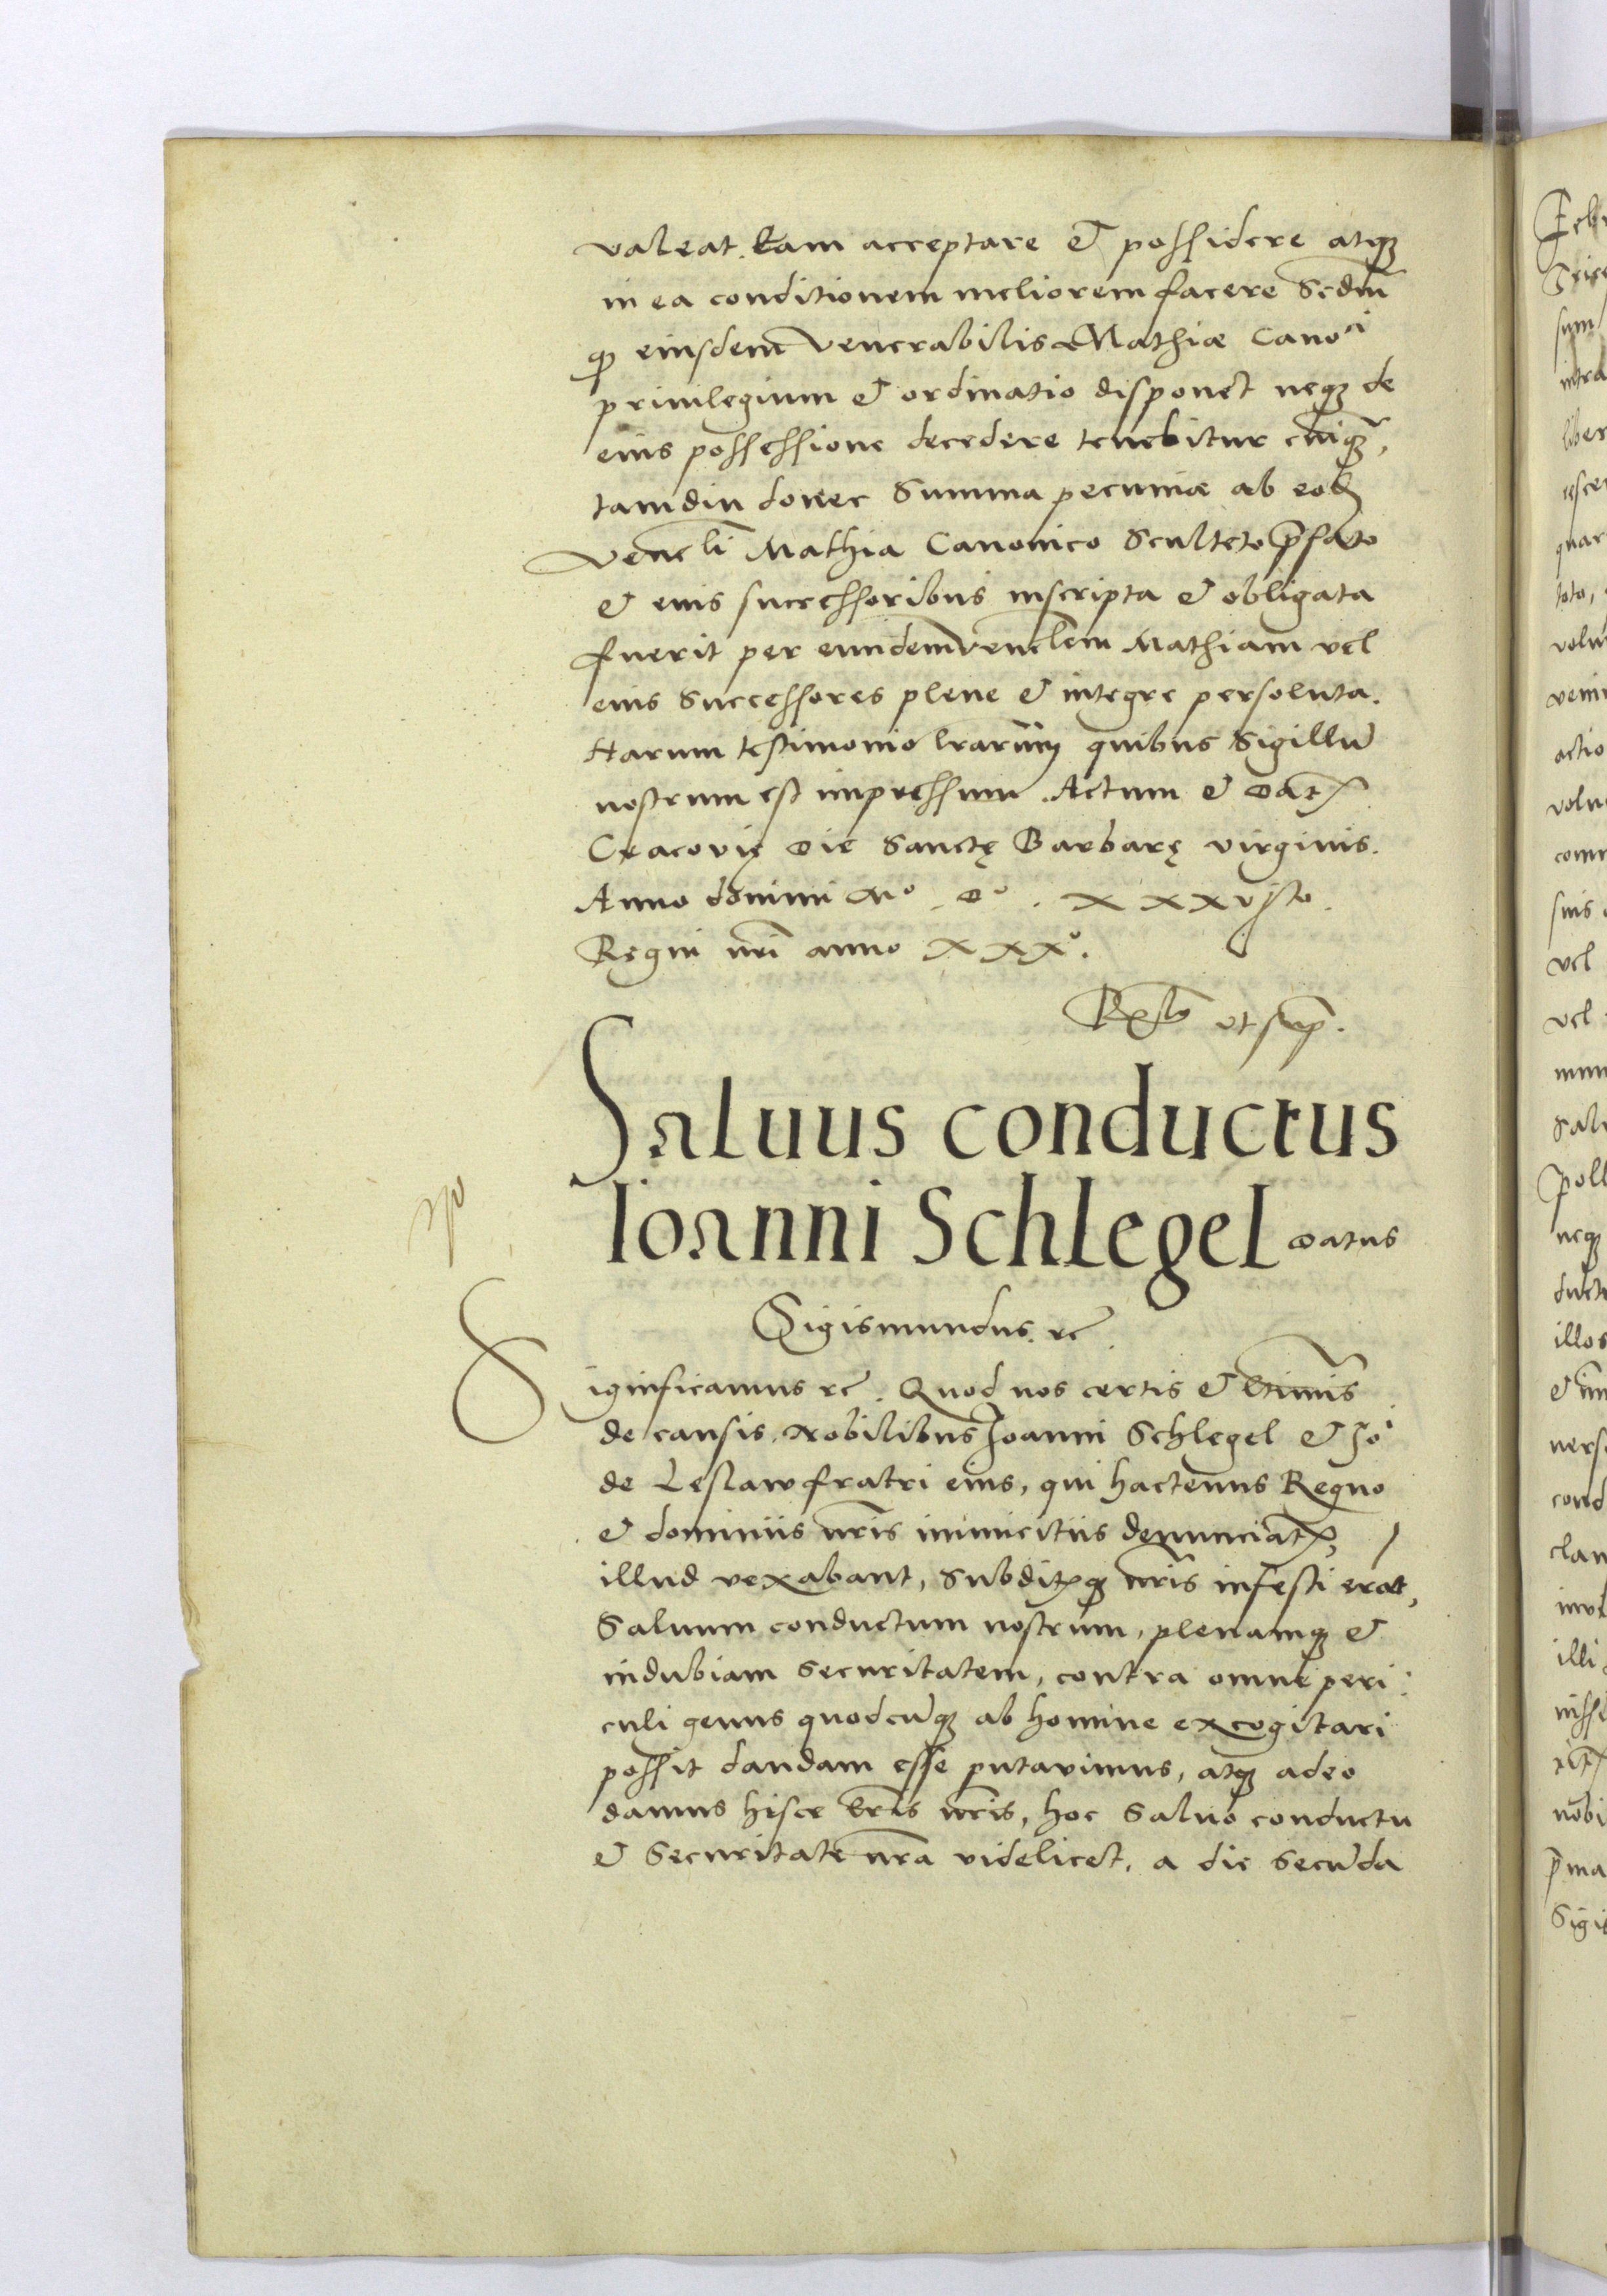 valeat. Eam acceptare et possidere atq
in ea conditionem meliorem facere Scdm
q eiusdem Venerabilis Mathiæ Cano^ci
priuilegium et ordinatio disponet neq de
eius possessione decedere tenebitur cuiq,
tamdiu donec Summa pecuniæ ab eod
Venelī Mathia Canonico Sculteto p̄fato
et eius successoribus inscripta et obligata
fuerit per eundem venelem Mathiam vel
eius Successores plene et integre persoluta.
Harum testimonio lrarum quibus Sigillū
nostrum est impressum. Actum et Dat
Cracovię Die Sanctę Barbarę virginis.
Anno domini Mº. Dº. xxxvjto.
Regni nri anno xxxº.
Rel̃o ut sup̄.
Saluus conductus
Ioanni Schlegel Datus
Sigismundus. rc
Significamus rc. Quod nos certis et ltimis
de causis, Nobilibus Joanni Schlegel et Jo^i
de Leslaw fratri eius, qui hactenus Regno
et dominiis nris inimicitiis denunciat,
illud vexabant, Subditisq nris infesti erat,
Saluum conductum nostrum, plenamq et
indubiam Securitatem, contra omne peri
culi genus quodcūq ab homine excogitari
possit dandam esse putavimus, atq adeo
damus hisce lris nris, hoc Saluo conductu
et Securitate nra videlicet, a die Secūda